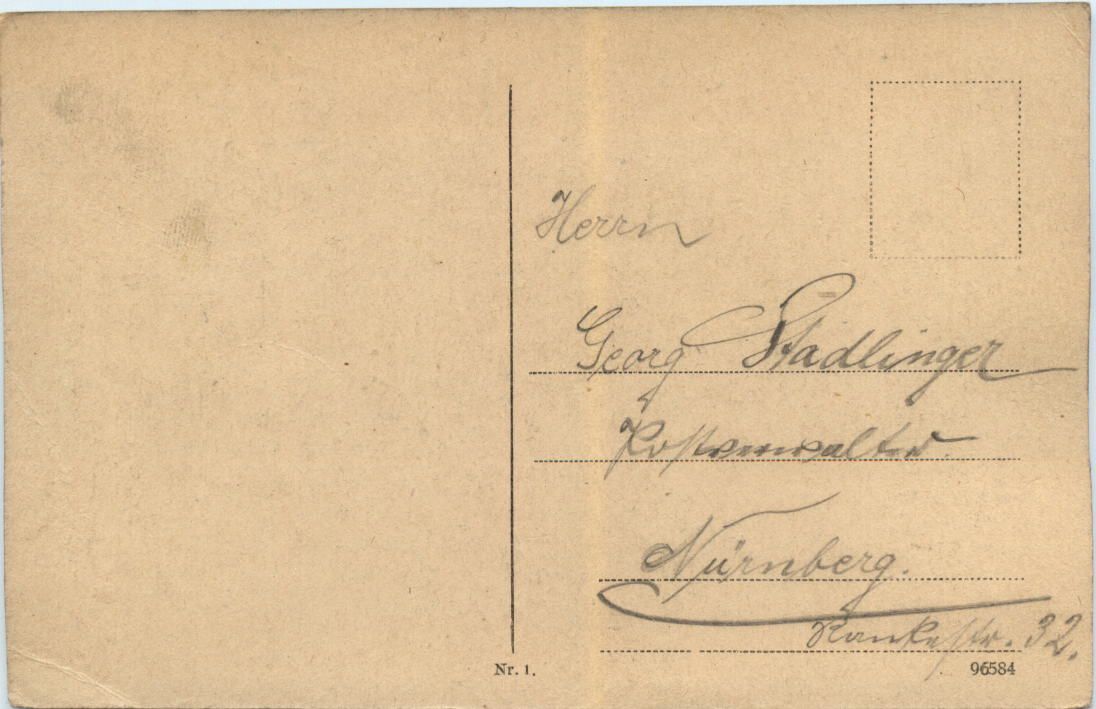 Herrn
Georg Stadlinger
Postverwalter.
Nürnberg.
Rankestr. 32.
Nr. 1.
96584